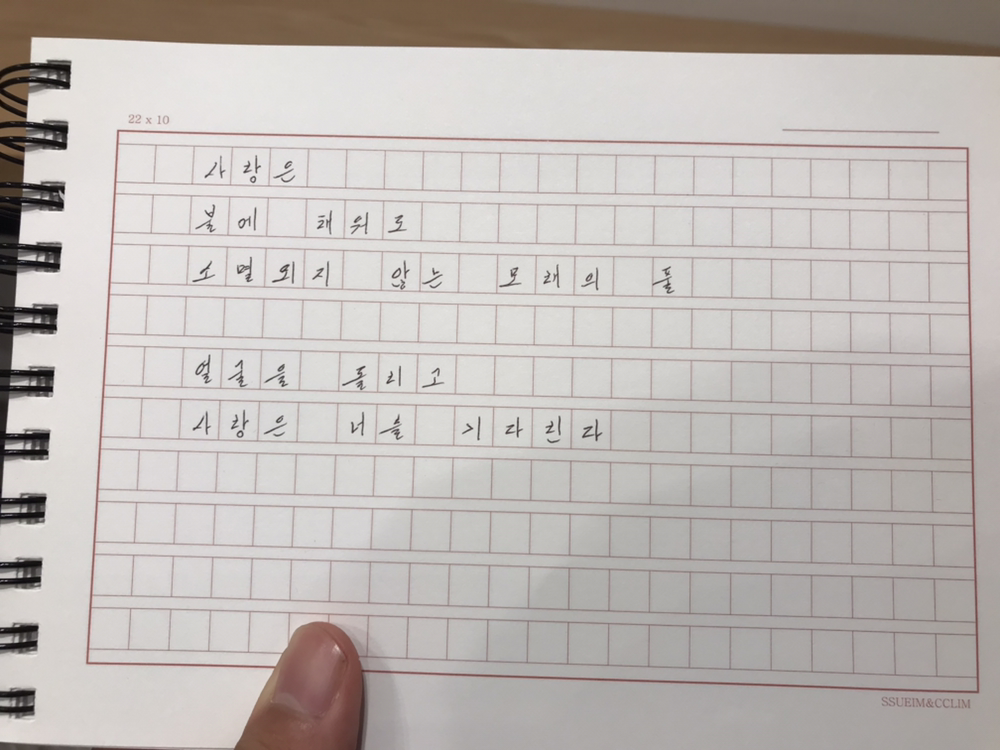 22 x 10
사랑은
불에 태워도
소멸되지 않는 모래의 풀
얼굴을 돌리고
사랑은 너를 기다린다
SSUEIM&CCLIM